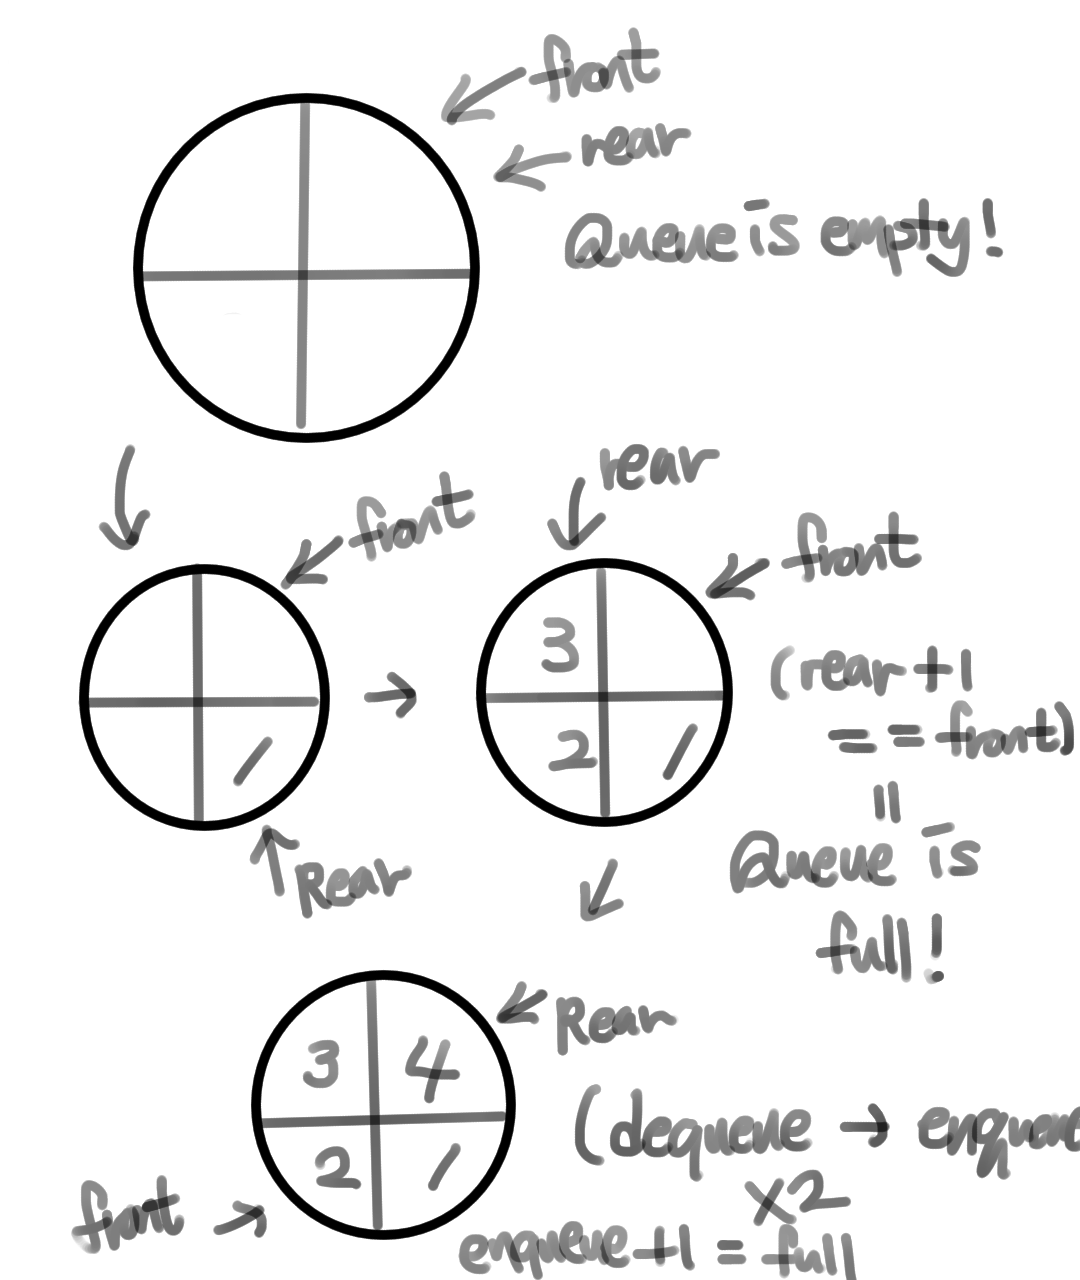 front
rear
Queue is empty!
front
1
Rear
rear
front
3
2
1
(rear+1
== front)
=
Queue is
full!
Rear
3 4
2 1
front
(dequeue → enqueue
x2
enqueue+1 = full